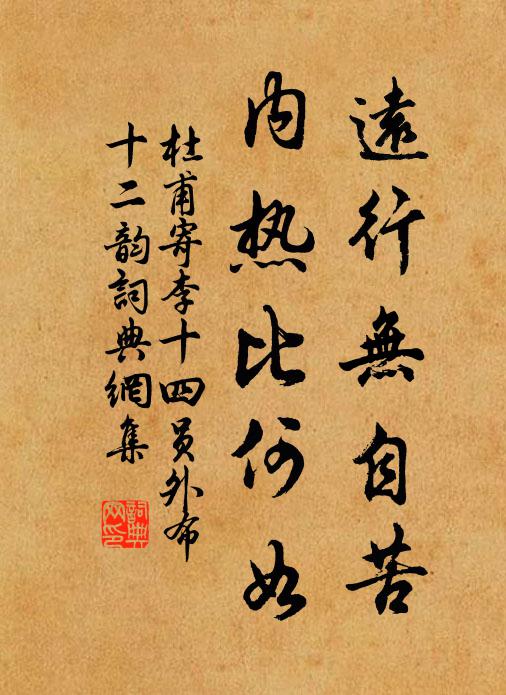 遠行無自苦
内热比何如
杜甫寄李十四员外布
十二韵詞典網集
詞典
网印